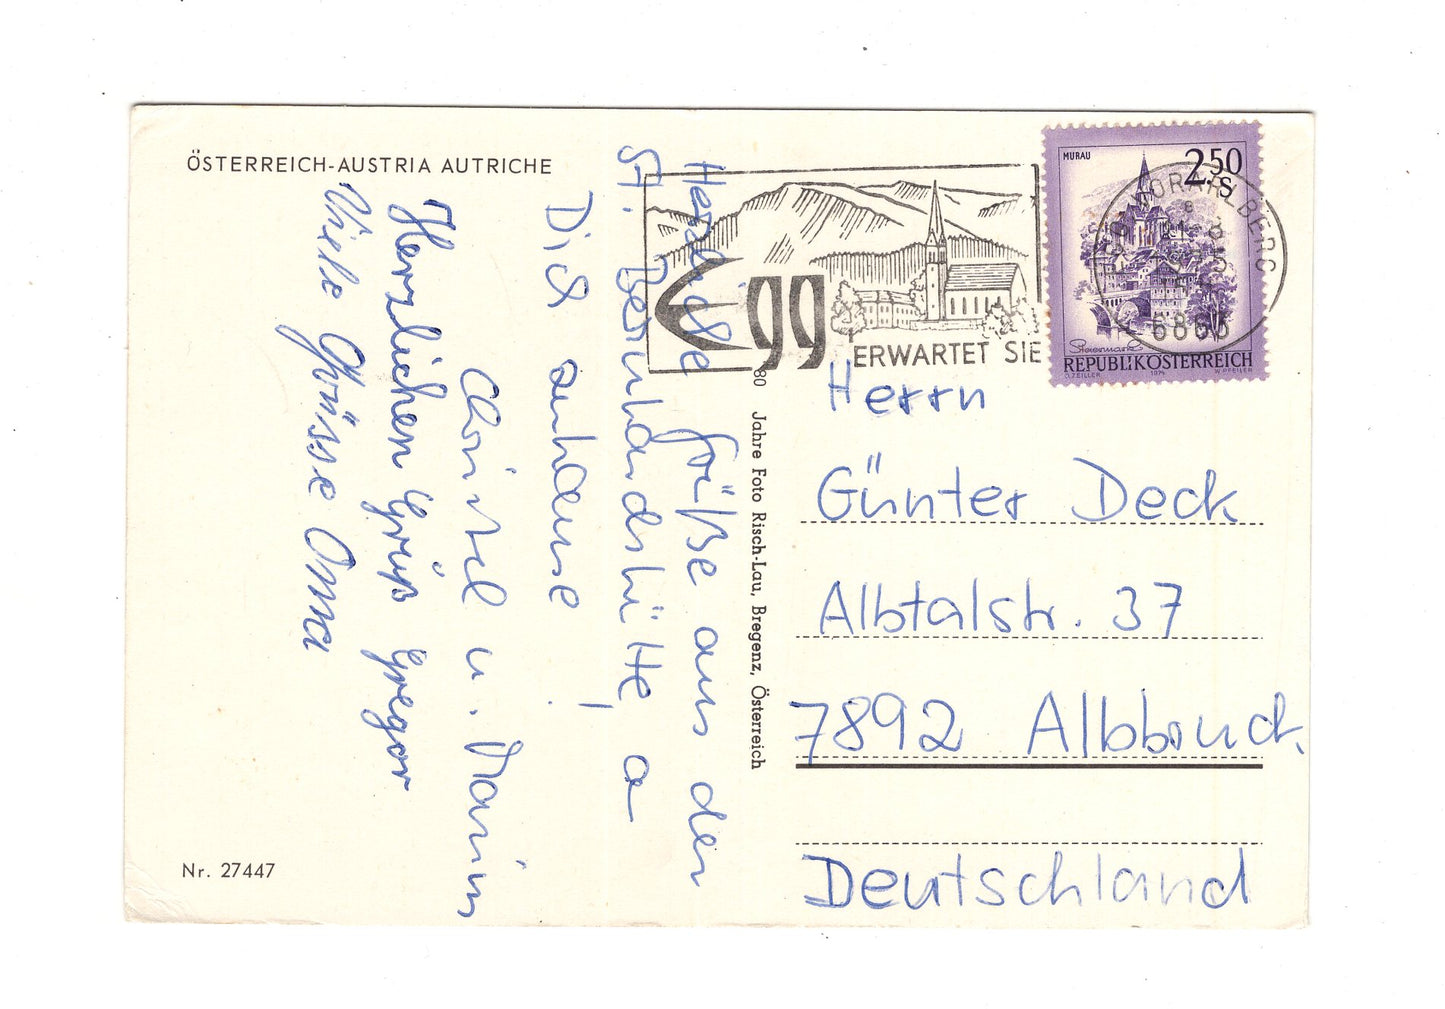 ÖSTERREICH-AUSTRIA AUTRICHE
Herzliche Grüße aus der
St. Bernhardshütte a
Dich zuhause!
Christel u. Marim
Herzlichen Gruß Gregor
Viele Grüsse Oma
Nr. 27447
80 Jahre Foto Risch-Lau, Bregenz, Österreich
Egg
ERWARTET SIE
MURAU
2.50
S
Steiermark
REPUBLIK ÖSTERREICH
O. ZEILLER 1974 W. PFEILER
VORARLBERG
6863
Herrn
Günter Deck
Albtalstr. 37
7892 Albbruck
Deutschland